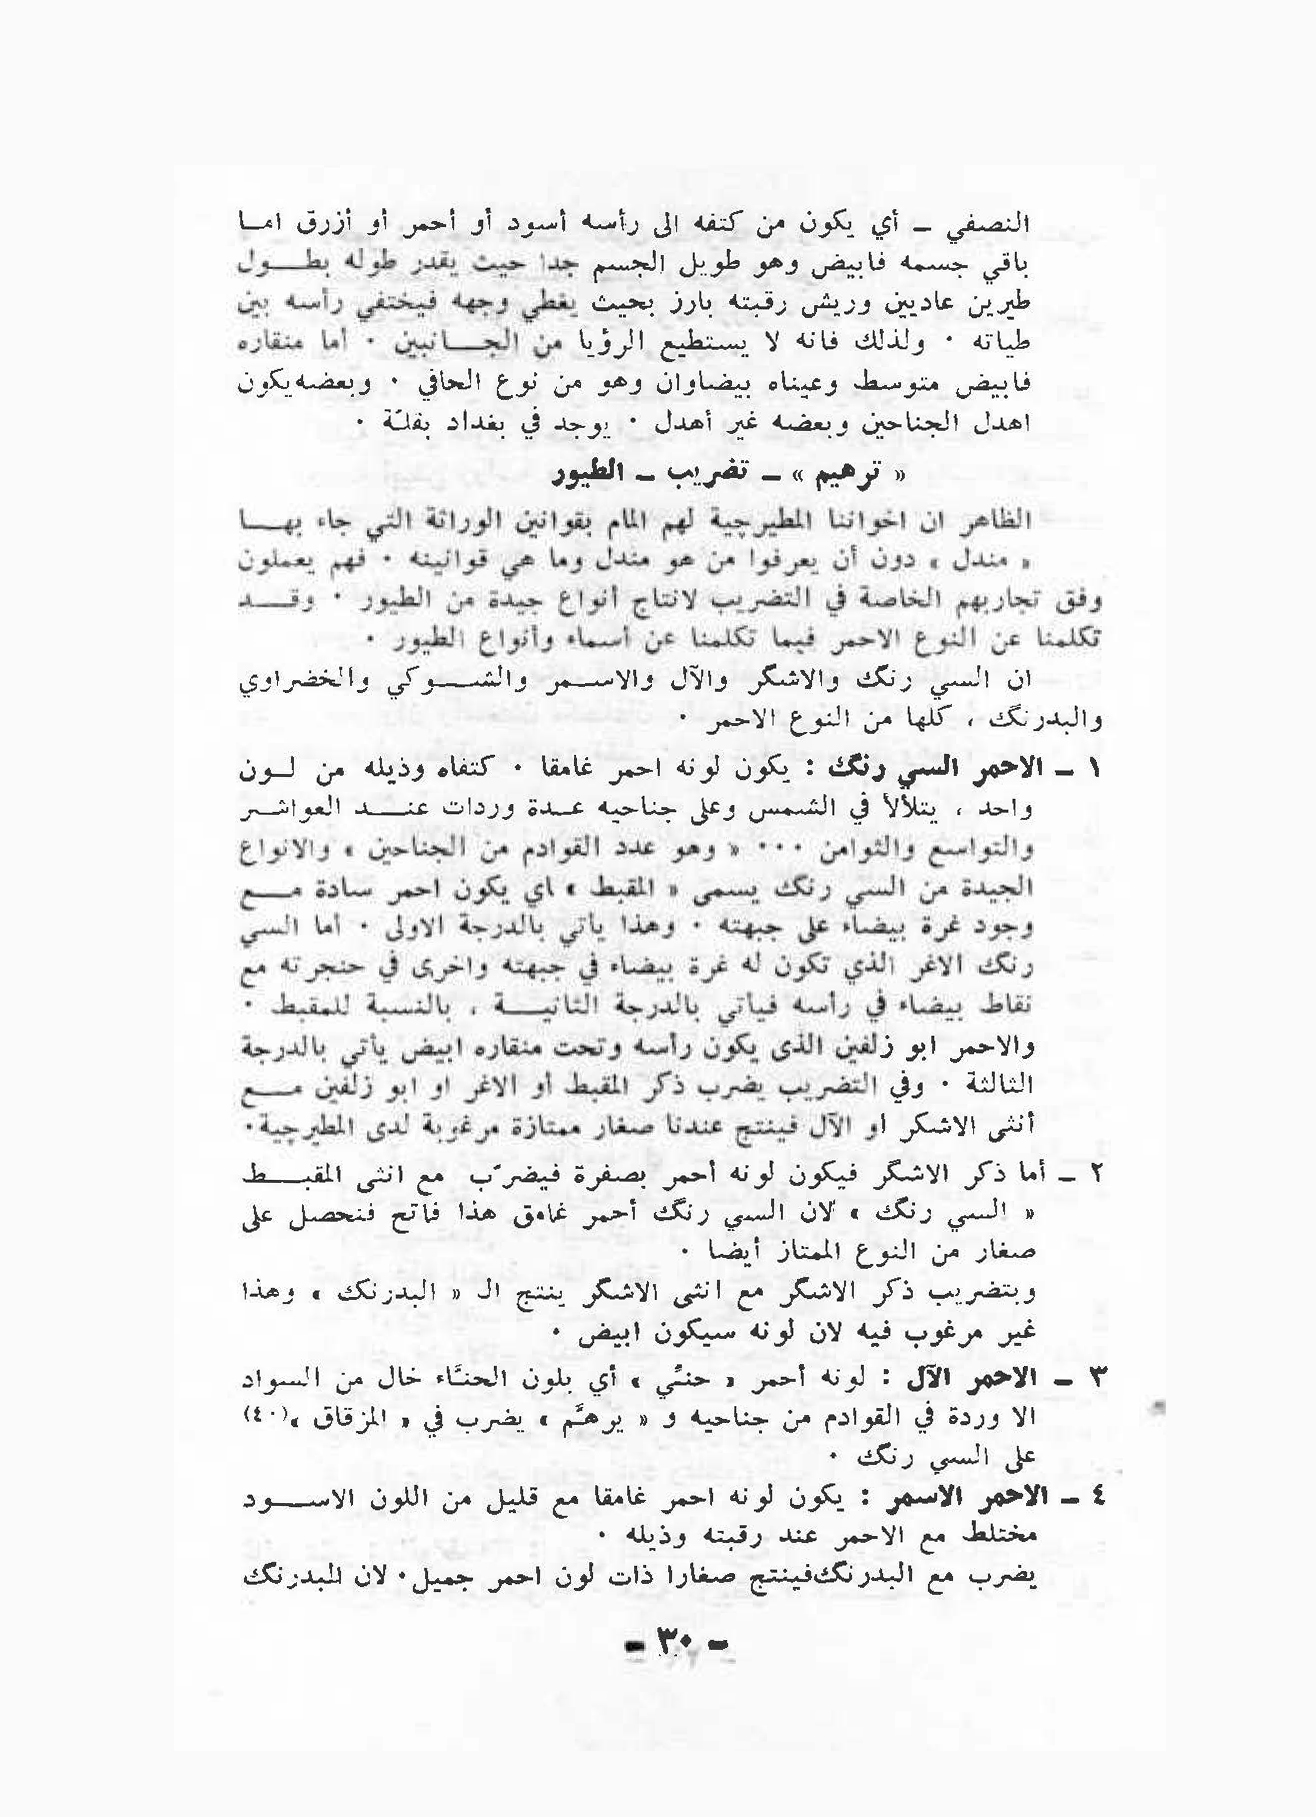 النصفي ــ أي يكون من كتفه الى رأسه أسود أو أحمر أو أزرق اما
باقي جسمه فابيض وهو طويل الجسم جدا حيث يقدر طوله بطول
طيرين عاديين وريش رقبته بارز بحيث يغطي وجهه فيختفي رأسه بين
طياته ٠ ولذلك فانه لا يستطيع الرؤيا من الجانبين ٠ أما منقاره
فابيض متوسط وعيناه بيضاوان وهو من نوع الحافي ٠ وبعضه يكون
اهدل الجناحين وبعضه غير أهدل ٠ يوجد في بغداد بقلّة ٠
« ترهيم » ــ تضريب ــ الطيور
الظاهر ان اخواننا المطيرچية لهم المام بقوانين الوراثة التي جاء بها
« مندل » دون أن يعرفوا من هو مندل وما هي قوانينه ٠ فهم يعملون
وفق تجاربهم الخاصة في التضريب لانتاج أنواع جيدة من الطيور ٠ وقد
تكلمنا عن النوع الاحمر فيما تكلمنا عن أسماء وأنواع الطيور ٠
ان السي رنگ والاشگر والآل والاسمر والشوكي والخضراوي
والبدرنگ ، كلها من النوع الاحمر ٠
١ ــ الاحمر السي رنگ : يكون لونه احمر غامقا ٠ كتفاه وذيله من لون
واحد ، يتلألأ في الشمس وعلى جناحيه عدة وردات عند العواشر
والتواسع والثوامن ٠٠٠ « وهو عدد القوادم من الجناحين » والانواع
الجيدة من السي رنگ يسمى « المقبط » اي يكون احمر سادة مع
وجود غرة بيضاء على جبهته ٠ وهذا يأتي بالدرجة الاولى ٠ أما السي
رنگ الاغر الذي تكون له غرة بيضاء في جبهته واخرى في حنجرته مع
نقاط بيضاء في رأسه فيأتي بالدرجة الثانية ، بالنسبة للمقبط ٠
والاحمر ابو زلفين الذى يكون رأسه وتحت منقاره ابيض يأتي بالدرجة
الثالثة ٠ وفي التضريب يضرب ذكر المقبط أو الاغر او ابو زلفين مع
أنثى الاشكر او الآل فينتج عندنا صغار ممتازة مرغوبة لدى المطيرچية٠
٢ ــ أما ذكر الاشگر فيكون لونه أحمر بصفرة فيضرّب مع انثى المقبط
« السي رنگ » لان السي رنگ أحمر غامق هذا فاتح فنحصل على
صغار من النوع الممتاز أيضا ٠
وبتضريب ذكر الاشگر مع انثى الاشگر ينتج ال « البدرنگ » وهذا
غير مرغوب فيه لان لونه سيكون ابيض ٠
٣ ــ الاحمر الآل : لونه أحمر « حنّي » أي بلون الحنّاء خال من السواد
الا وردة في القوادم من جناحيه و « يرهّم » يضرب في « المزقاق »(٤٠)
على السي رنگ ٠
٤ ــ الاحمر الاسمر : يكون لونه احمر غامقا مع قليل من اللون الاسود
مختلط مع الاحمر عند رقبته وذيله ٠
يضرب مع البدرنگ فينتج صغارا ذات لون احمر جميل٠ لان البدرنگ
ــ ٣٠ ــ